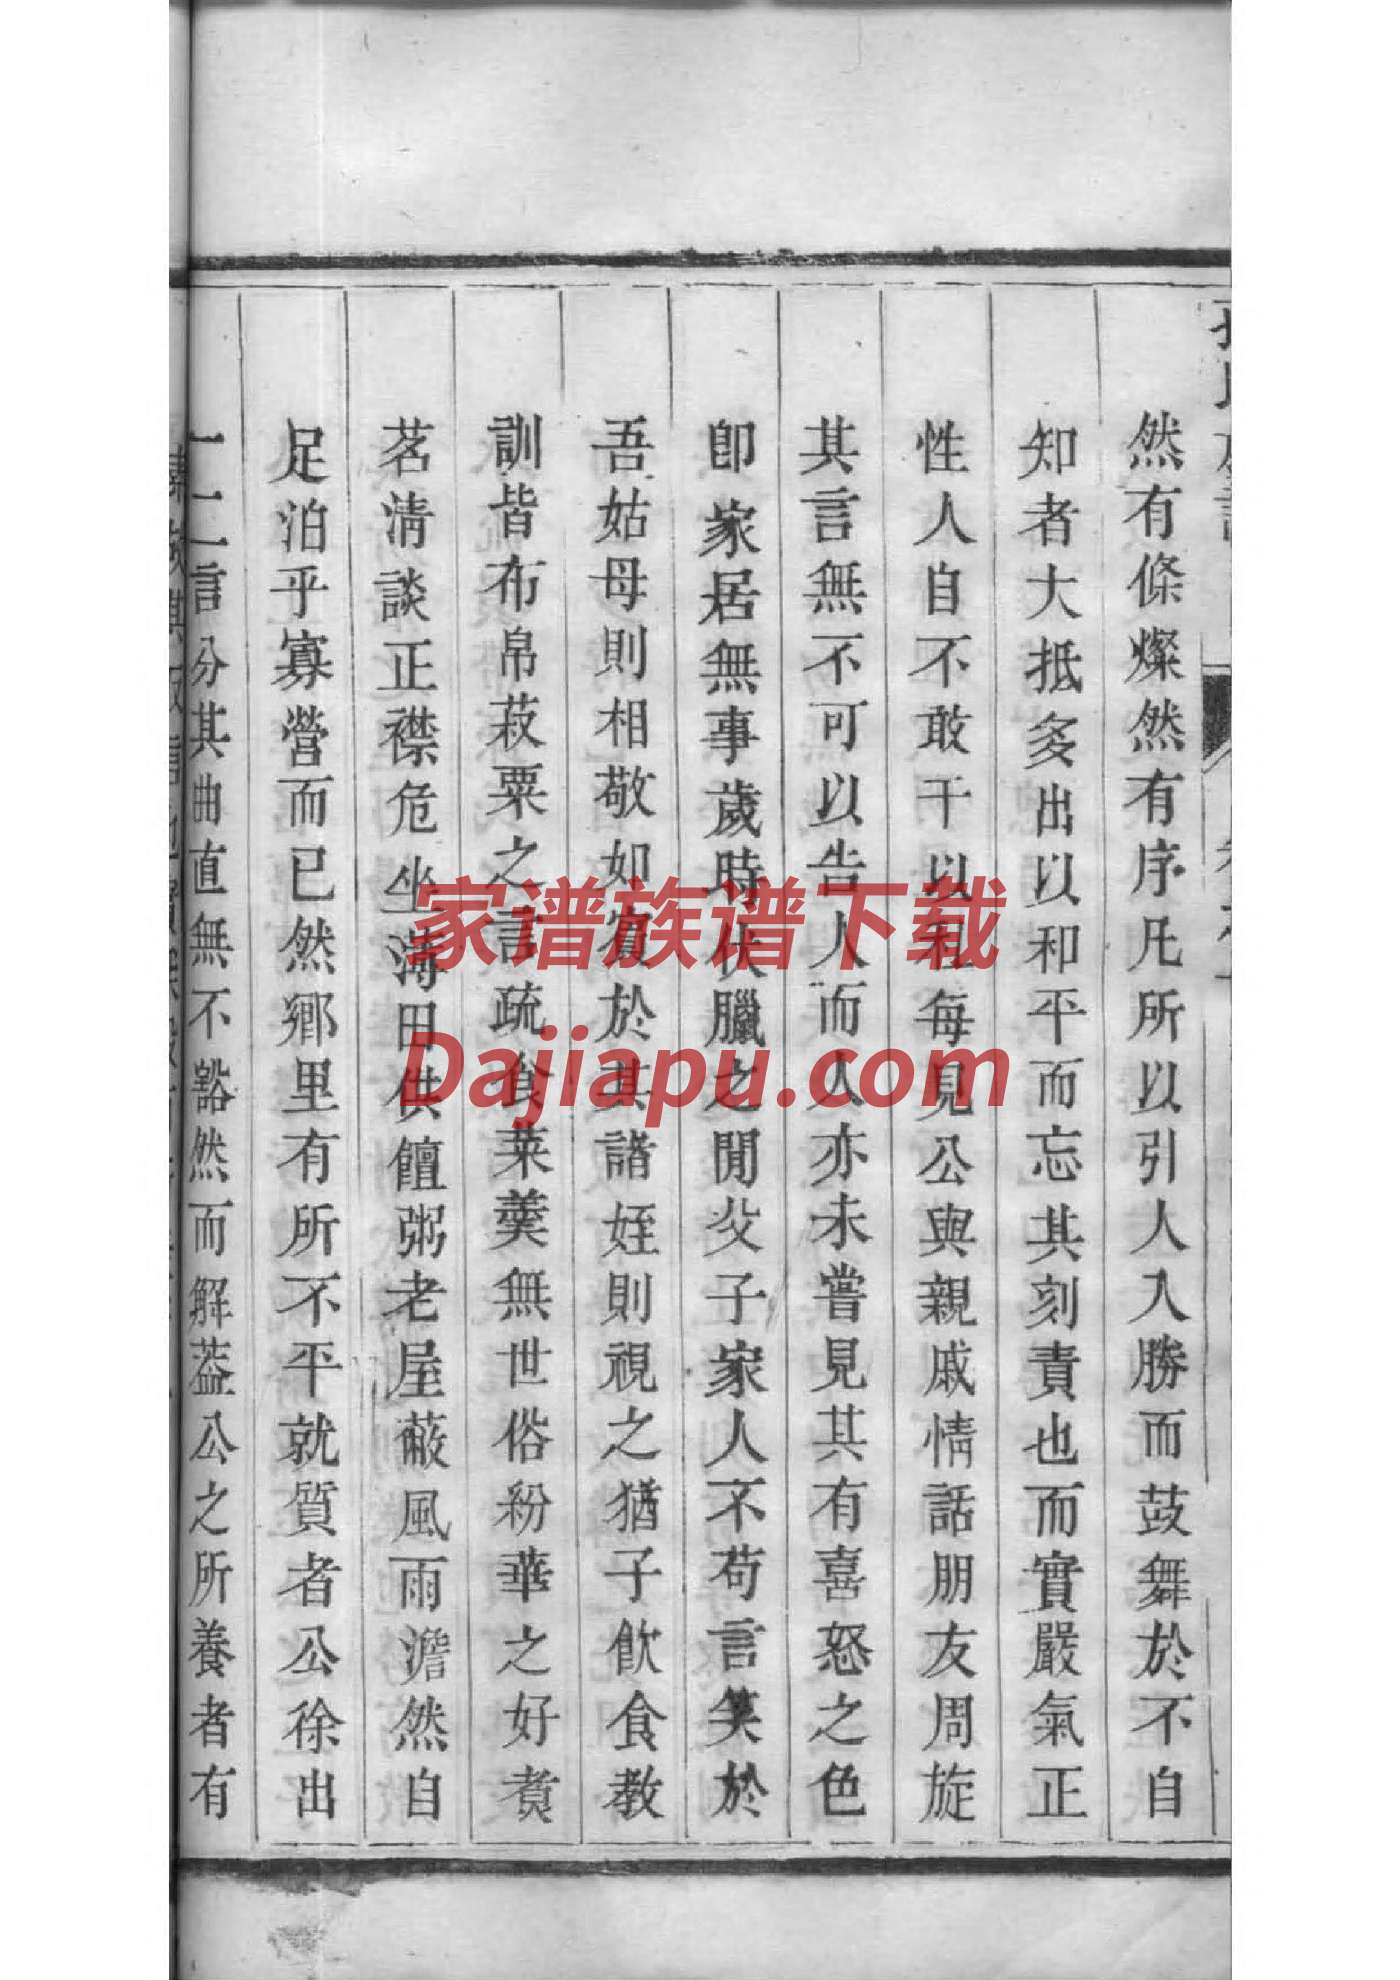 然有條燦然有序凡所以引人入勝而鼓舞於不自
知者大抵多出以和平而忘其刻責也而實嚴氣正
性人自不敢干以私每見公與親戚情話朋友周旋
其言無不可以告人而人亦未嘗見其有喜怒之色
卽家居無事歲時伏臘之閒父子家人不苟言笑於
吾姑母則相敬如賓於其諸姪則視之猶子飲食教
訓皆布帛菽粟之言疏食菜羹無世俗紛華之好煑
茗清談正襟危坐薄田供饘粥老屋蔽風雨澹然自
足泊乎寡營而已然鄉里有所不平就質者公徐出
一二言分其曲直無不豁然而解葢公之所養者有
家谱族谱下载
Dajiapu.com